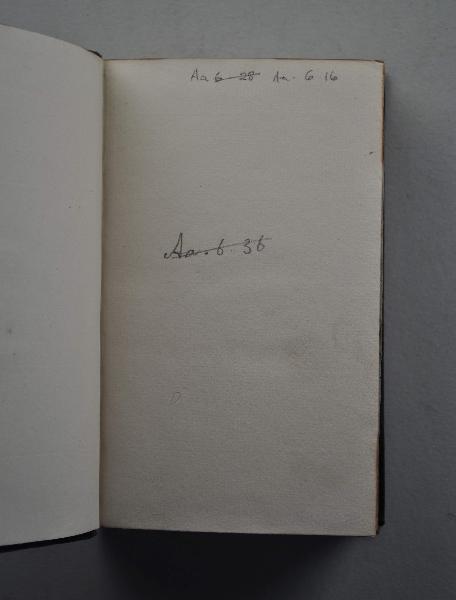 Aa 6 28 Aa. 6 16
Aa. 6. 36